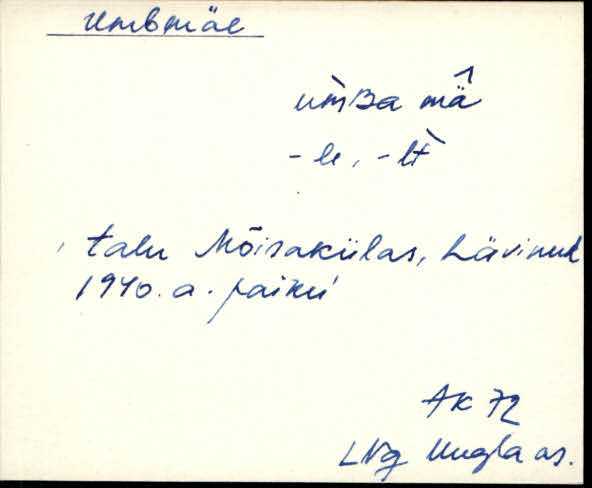 Umbmäe
um̀Ba mä̂
- le, - lt̀
talu Mõisakülas, hävinud
1940. a. paiku
AK 72
LNg Uugla as.